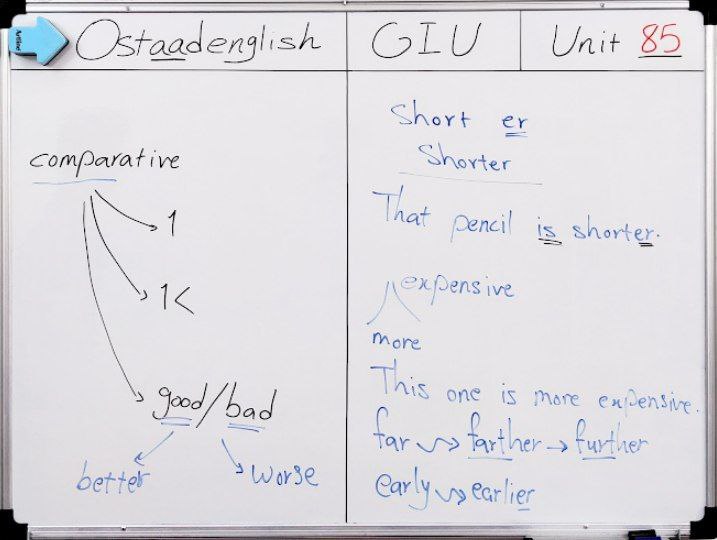 Ostaadenglish
GIU
Unit 85
comparative
1
1<
good/bad
better
worse
Short er
Shorter
That pencil is shorter.
expensive
more
This one is more expensive.
far farther → further
early earlier